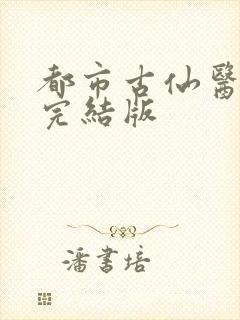 都市古仙醫
完結版
潘書培